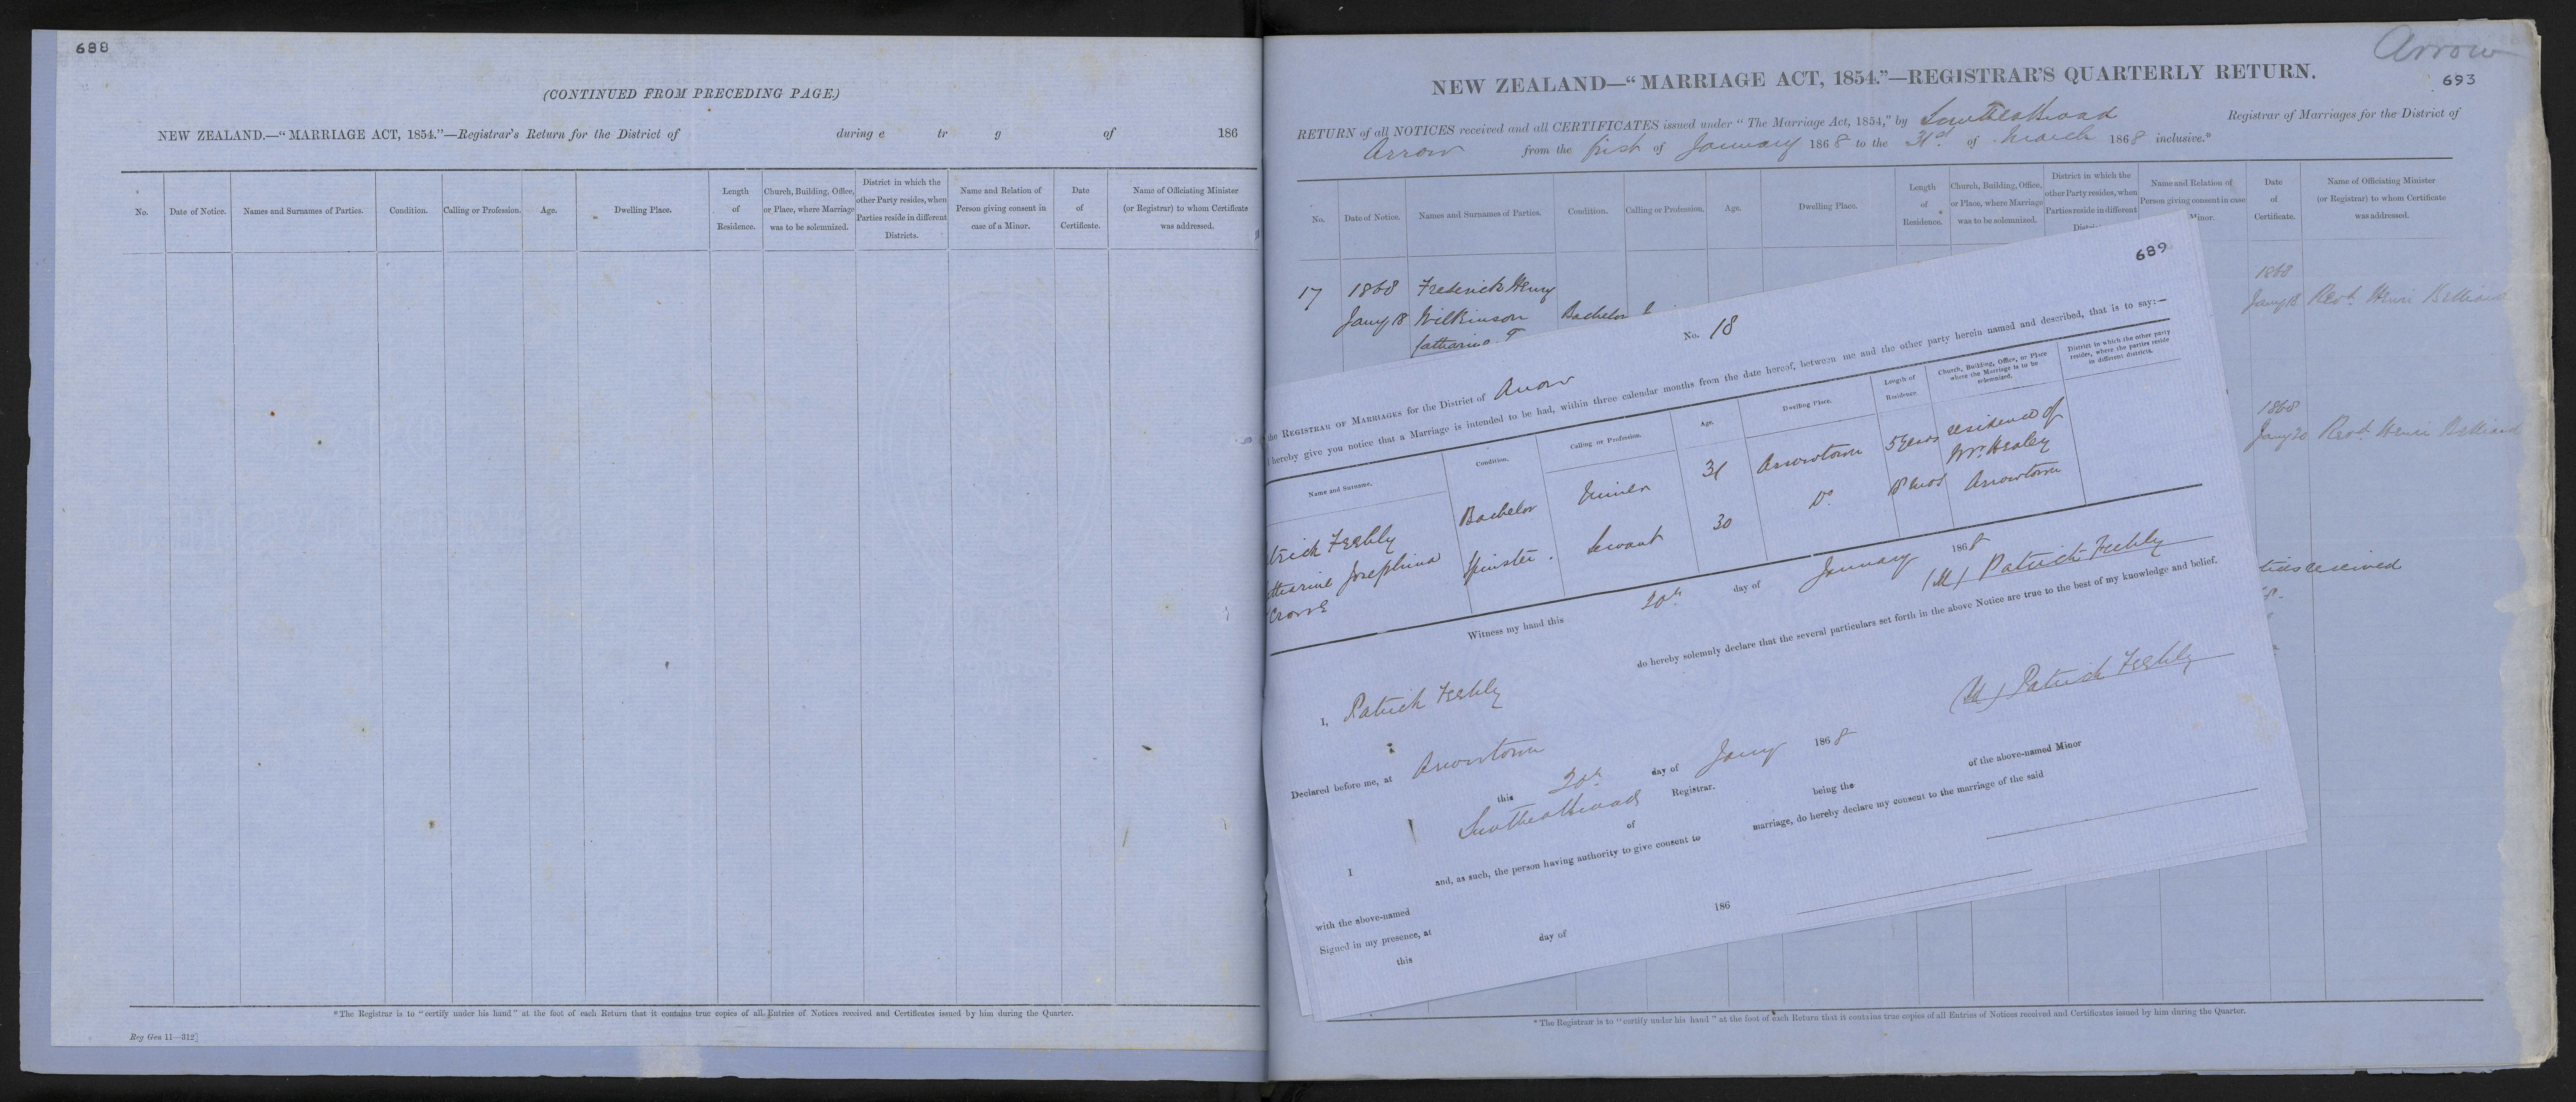 688
(CONTINUED FROM PRECEDING PAGE.)
NEW ZEALAND.—“MARRIAGE ACT, 1854.”—Registrar's Return for the District of during e tr g of 186
No.
Date of Notice.
Names and Surnames of Parties.
Condition.
Calling or Profession.
Age.
Dwelling Place.
Length
of
Residence.
Church, Building, Office,
or Place, where Marriage
was to be solemnized.
District in which the
other Party resides, when
Parties reside in different
Districts.
Name and Relation of
Person giving consent in
case of a Minor.
Date
of
Certificate.
Name of Officiating Minister
(or Registrar) to whom Certificate
was addressed.
*The Registrar is to “certify under his hand” at the foot of each Return that it contains true copies of all Entries of Notices received and Certificates issued by him during the Quarter.
Reg Gen 11—312]
Arrow
693
NEW ZEALAND—“MARRIAGE ACT, 1854.”—REGISTRAR'S QUARTERLY RETURN.
RETURN of all NOTICES received and all CERTIFICATES issued under “The Marriage Act, 1854,” by Registrar of Marriages for the District of
Arrow from the first of January 1868 to the 31st of March 1868 inclusive.*
No.
Date of Notice.
Names and Surnames of Parties.
Condition.
Calling or Profession.
Age.
Dwelling Place.
Length
of
Residence.
Church, Building, Office,
or Place, where Marriage
was to be solemnized.
District in which the
other Party resides, when
Parties reside in different
Distri
Name and Relation of
Person giving consent in case
Minor.
Date
of
Certificate.
Name of Officiating Minister
(or Registrar) to whom Certificate
was addressed.
17 1868 Frederick Henry
Jany 18 Wilkinson Bachelor
Catharine
1868
Jany 18 Revd. Henri Belliard
1868
Jany 20 Revd. Henri Belliard
tices received
689
No. 18
the REGISTRAR OF MARRIAGES for the District of Arrow
I hereby give you notice that a Marriage is intended to be had, within three calendar months from the date hereof, between me and the other party herein named and described, that is to say:—
Name and Surname.
Condition.
Calling or Profession.
Age.
Dwelling Place.
Length of
Residence.
Church, Building, Office, or Place
where the Marriage is to be
solemnized.
District in which the other party
resides, where the parties reside
in different districts.
trick Feehly Bachelor Miner 31 Arrowtown 5 years residence of
Mr. Healey
atharine Josephina Spinster. Servant 30 Do. Arrowtown
Crowe
Witness my hand this 20th day of January 1868
Patrick Feehly
I, Patrick Feehly do hereby solemnly declare that the several particulars set forth in the above Notice are true to the best of my knowledge and belief.
Patrick Feehly
Declared before me, at Arrowtown
this 20th day of Jany 1868
Registrar.
I of being the of the above-named Minor
and, as such, the person having authority to give consent to marriage, do hereby declare my consent to the marriage of the said
with the above-named
Signed in my presence, at
this day of 186
*The Registrar is to “certify under his hand” at the foot of each Return that it contains true copies of all Entries of Notices received and Certificates issued by him during the Quarter.